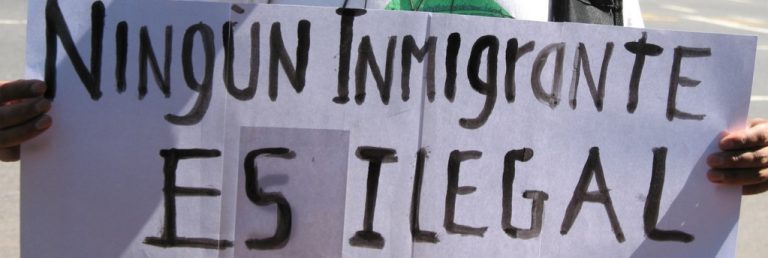 Ningún Inmigrante
es ilegal